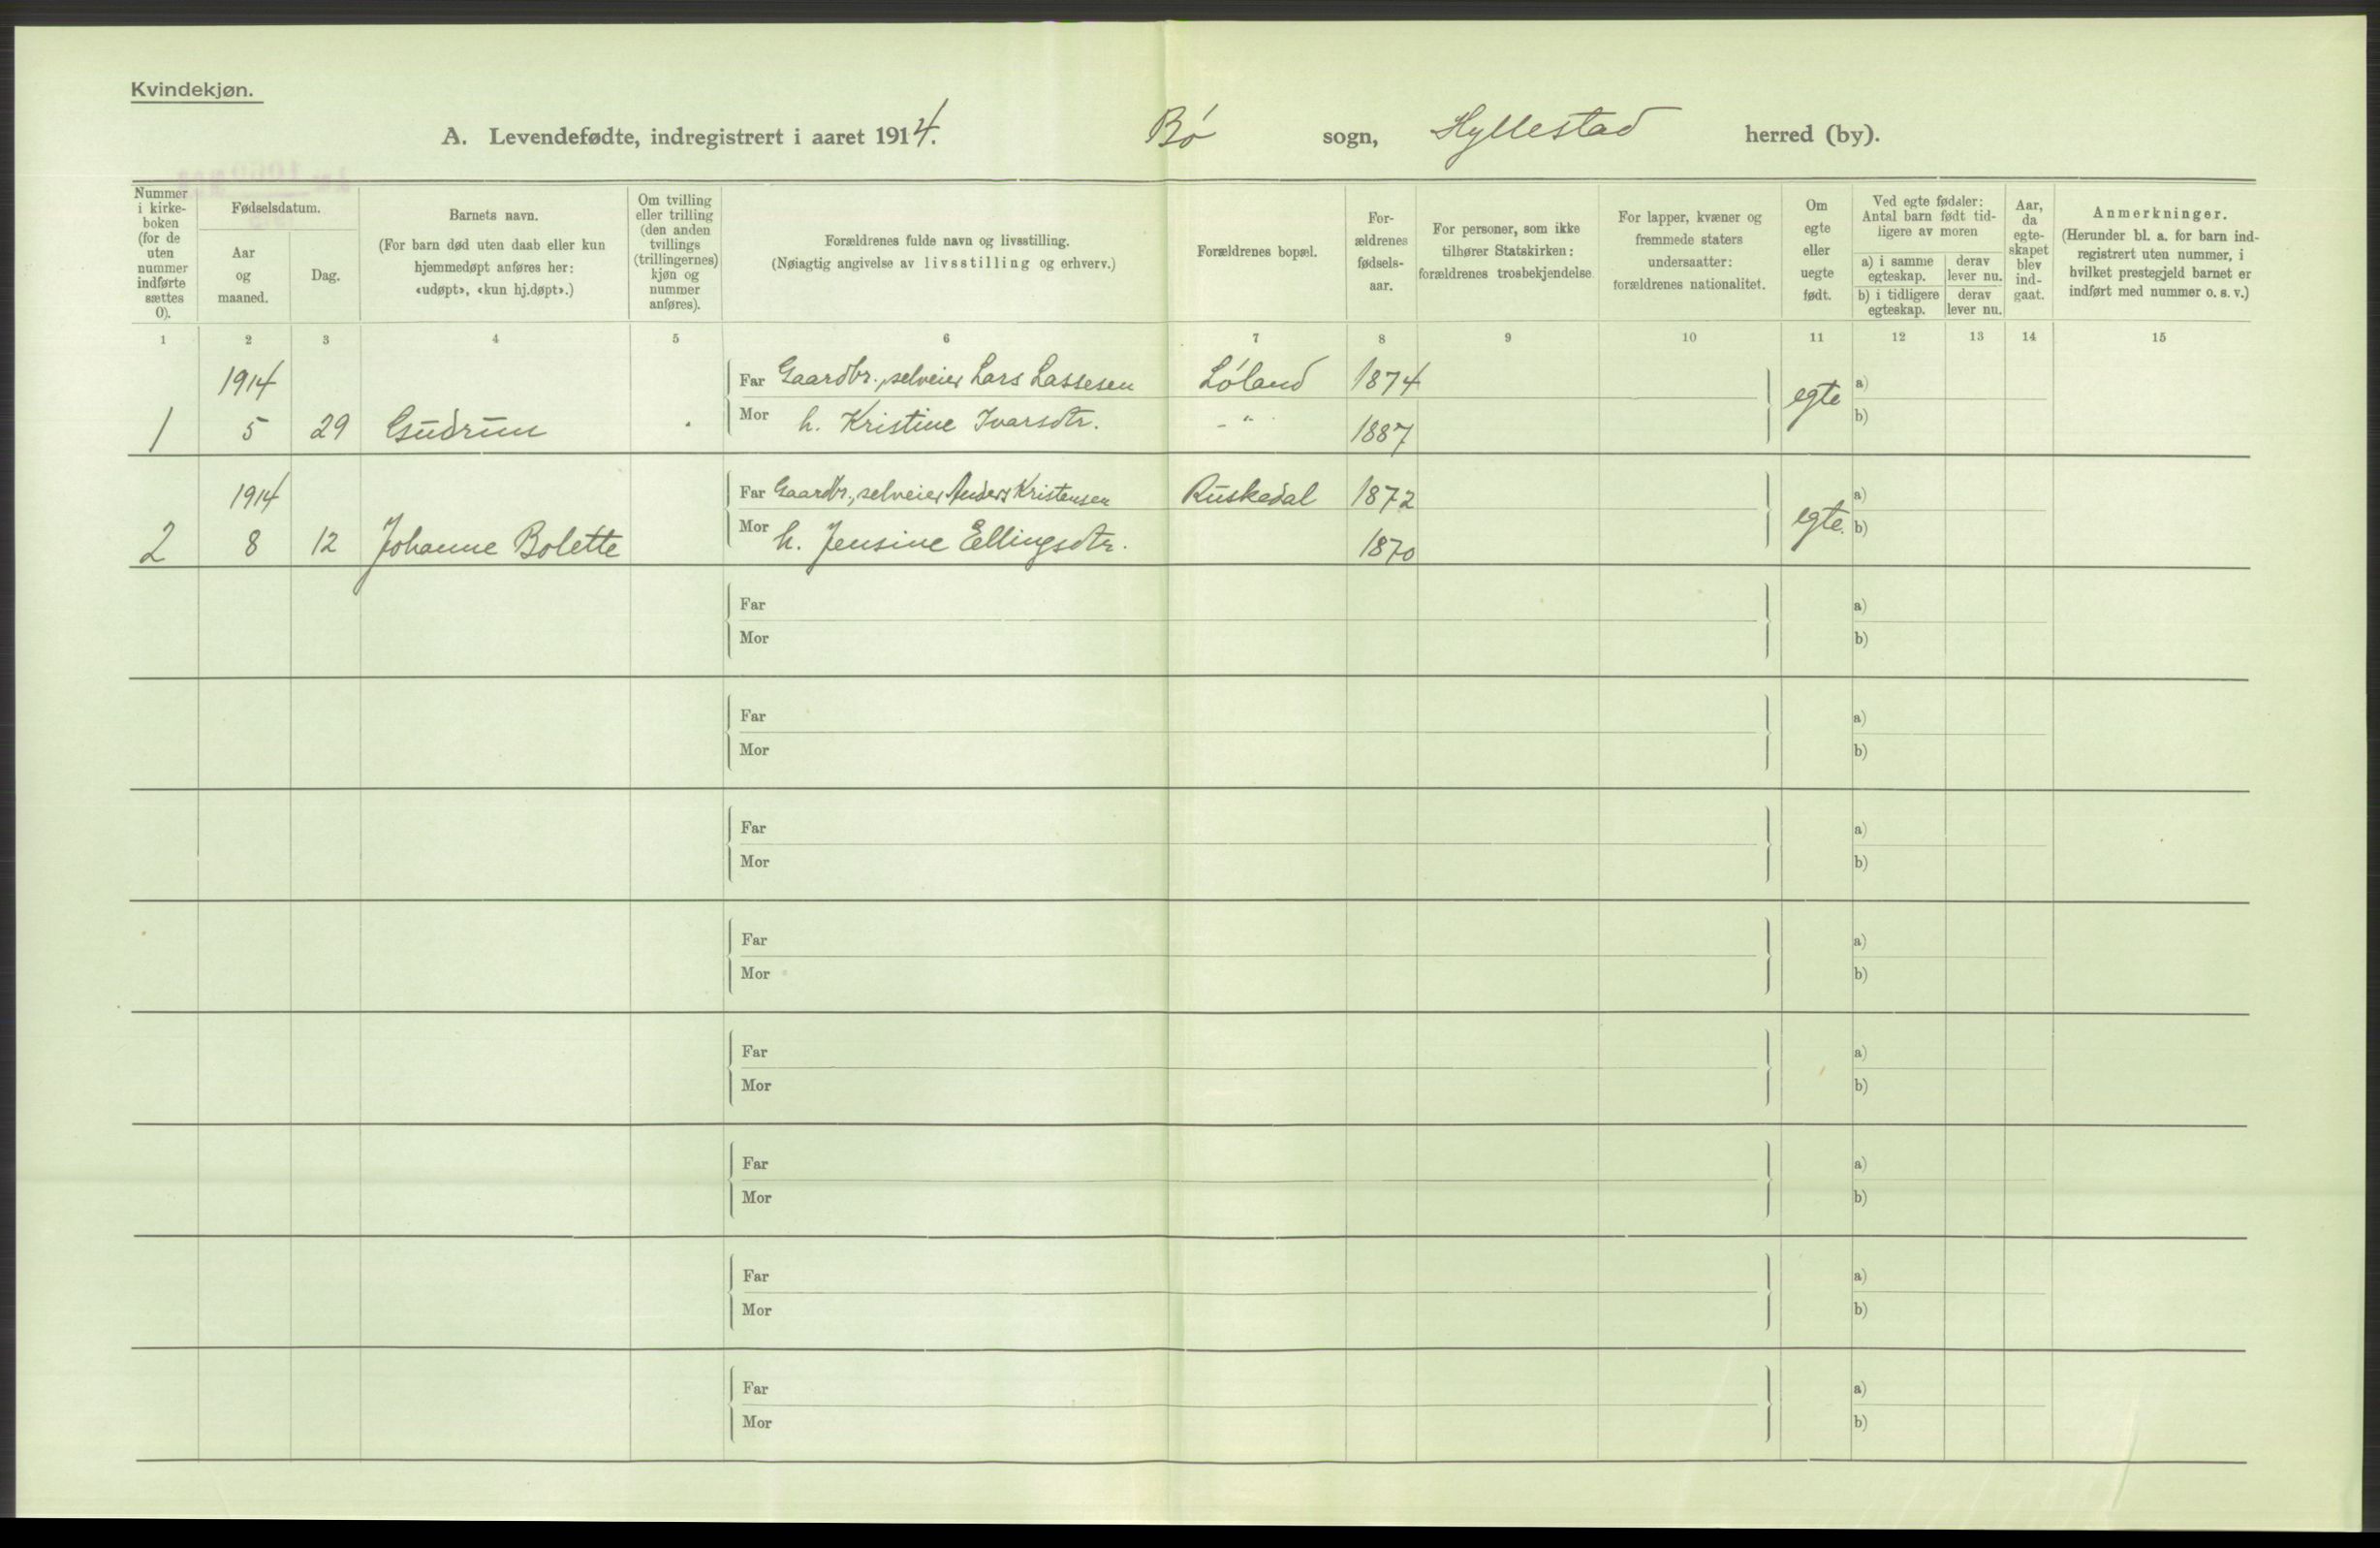 Kvindekjøn.
A. Levendefødte, indregistrert i aaret 1914. Bø sogn, Hyllestad herred (by).
Nummer i kirke-boken (for de uten nummer indførte sættes 0).
Fødselsdatum.
Aar og maaned.
Dag.
Barnets navn.
(For barn død uten daab eller kun hjemmedøpt anføres her: «udøpt», «kun hj.døpt».)
Om tvilling eller trilling (den anden tvillings (trillingernes) kjøn og nummer anføres).
Forældrenes fulde navn og livsstilling.
(Nøiagtig angivelse av livsstilling og erhverv.)
Forældrenes bopæl.
For-ældrenes fødsels-aar.
For personer, som ikke tilhører Statskirken: forældrenes trosbekjendelse.
For lapper, kvæner og fremmede staters undersaatter: forældrenes nationalitet.
Om egte eller uegte født.
Ved egte fødsler: Antal barn født tid-ligere av moren
a) i samme egteskap.
derav lever nu.
b) i tidligere egteskap.
derav lever nu.
Aar, da egte-skapet blev ind-gaat.
Anmerkninger.
(Herunder bl. a. for barn ind-registrert uten nummer, i hvilket prestegjeld barnet er indført med nummer o. s. v.)
1 2 3 4 5 6 7 8 9 10 11 12 13 14 15
1914 Far Gaardbr., selveier Lars Lassesen Løland 1874 egte a)
1 5 29 Gudrun Mor h. Kristine Ivarsdtr. - " - 1887 b)
1914 Far Gaardbr., selveier Anders Kristensen Ruskedal 1872 egte. a)
2 8 12 Johanne Bolette Mor h. Jensine Ellingsdtr. 1870 b)
Far a)
Mor b)
Far a)
Mor b)
Far a)
Mor b)
Far a)
Mor b)
Far a)
Mor b)
Far a)
Mor b)
Far a)
Mor b)
Far a)
Mor b)